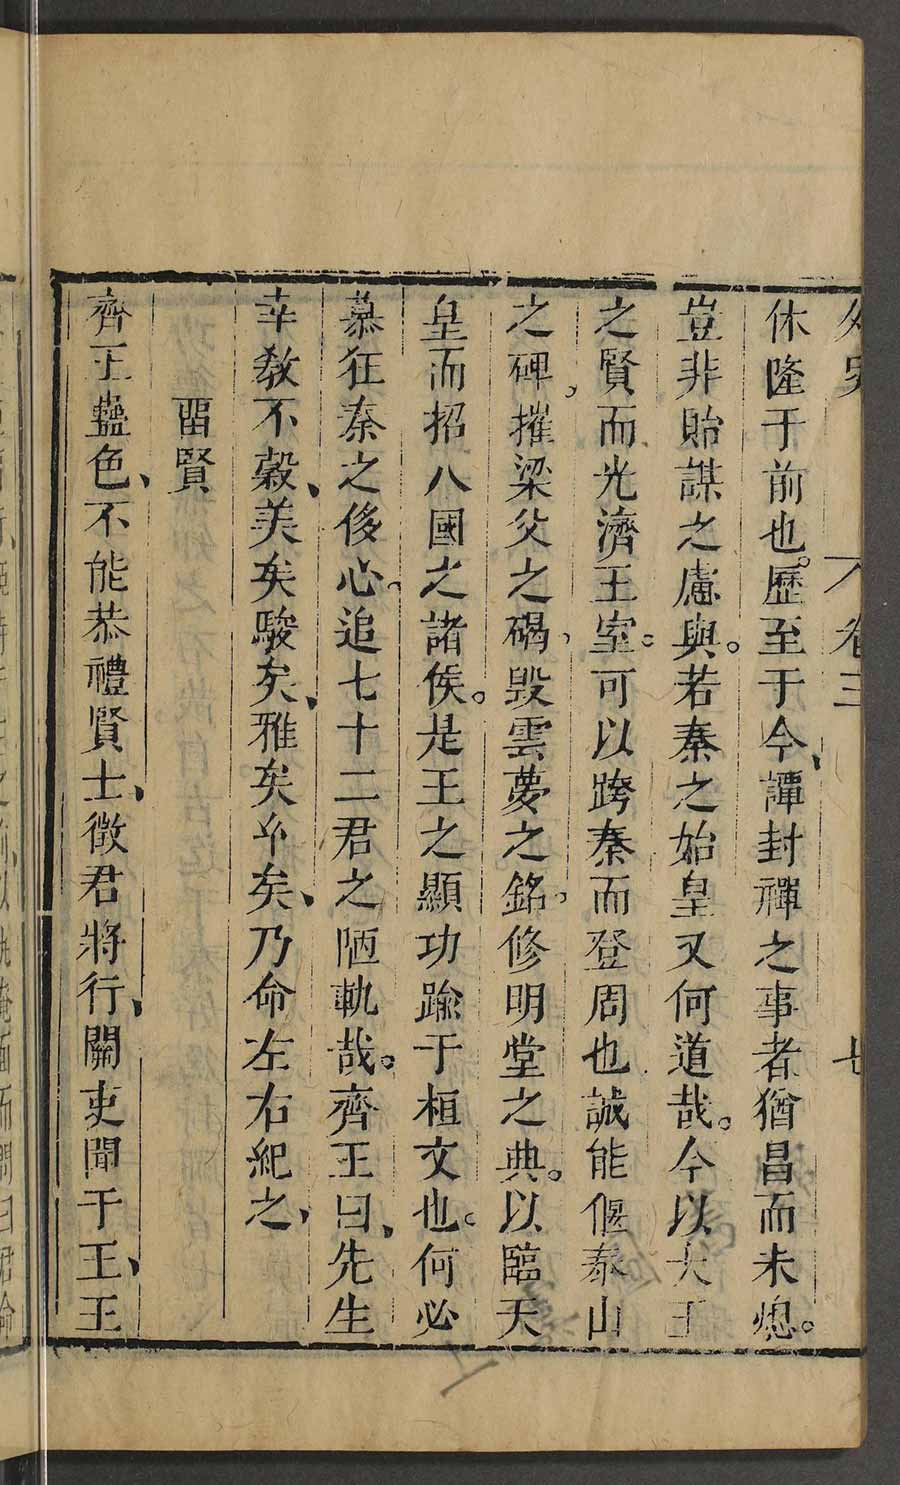 外史 卷三 七
休隆于前也。歷至于今、譚封禪之事者猶昌而未熄。
豈非貽謀之慮與。若秦之始皇又何道哉。今以大王
之賢而光濟王室。可以跨秦而登周也誠能偃泰山
之碑，摧梁父之碣，毁雲夢之銘，修明堂之典。以臨天
皇而招八國之諸侯。是王之顯功踰于桓文也。何必
慕狂秦之侈心，追七十二君之陋軌哉。齊王曰、先生
幸敎不穀、美矣駿矣、雅矣卟矣、乃命左右紀之、
畱賢
齊王蠱色、不能恭禮賢士、徵君將行、關吏聞于王、王